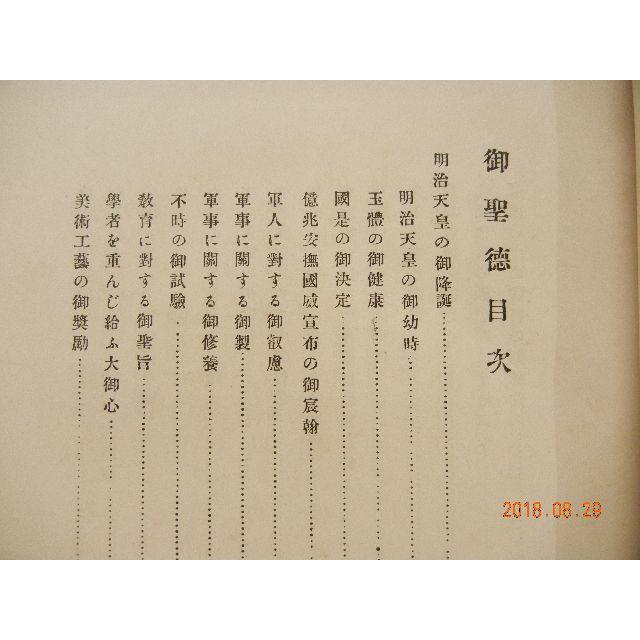 御聖德目次
明治天皇の御降誕
明治天皇の御幼時
玉體の御健康
國是の御決定
億兆安撫國威宣布の御宸翰
軍人に對する御叡慮
軍事に關する御製
軍事に關する御修養
不時の御試驗
敎育に對する御聖旨
學者を重んじ給ふ大御心
美術工藝の御奬勵
2018.08.28